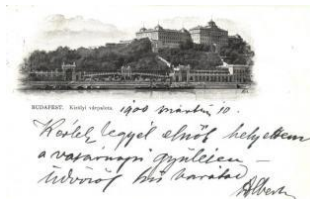 BUDAPEST. Királyi várpalota. 1900 március 10.
Kérlek legyél elnök helyettem
a vasárnapi gyülésen –
üdvözöl hű barátod
Albert